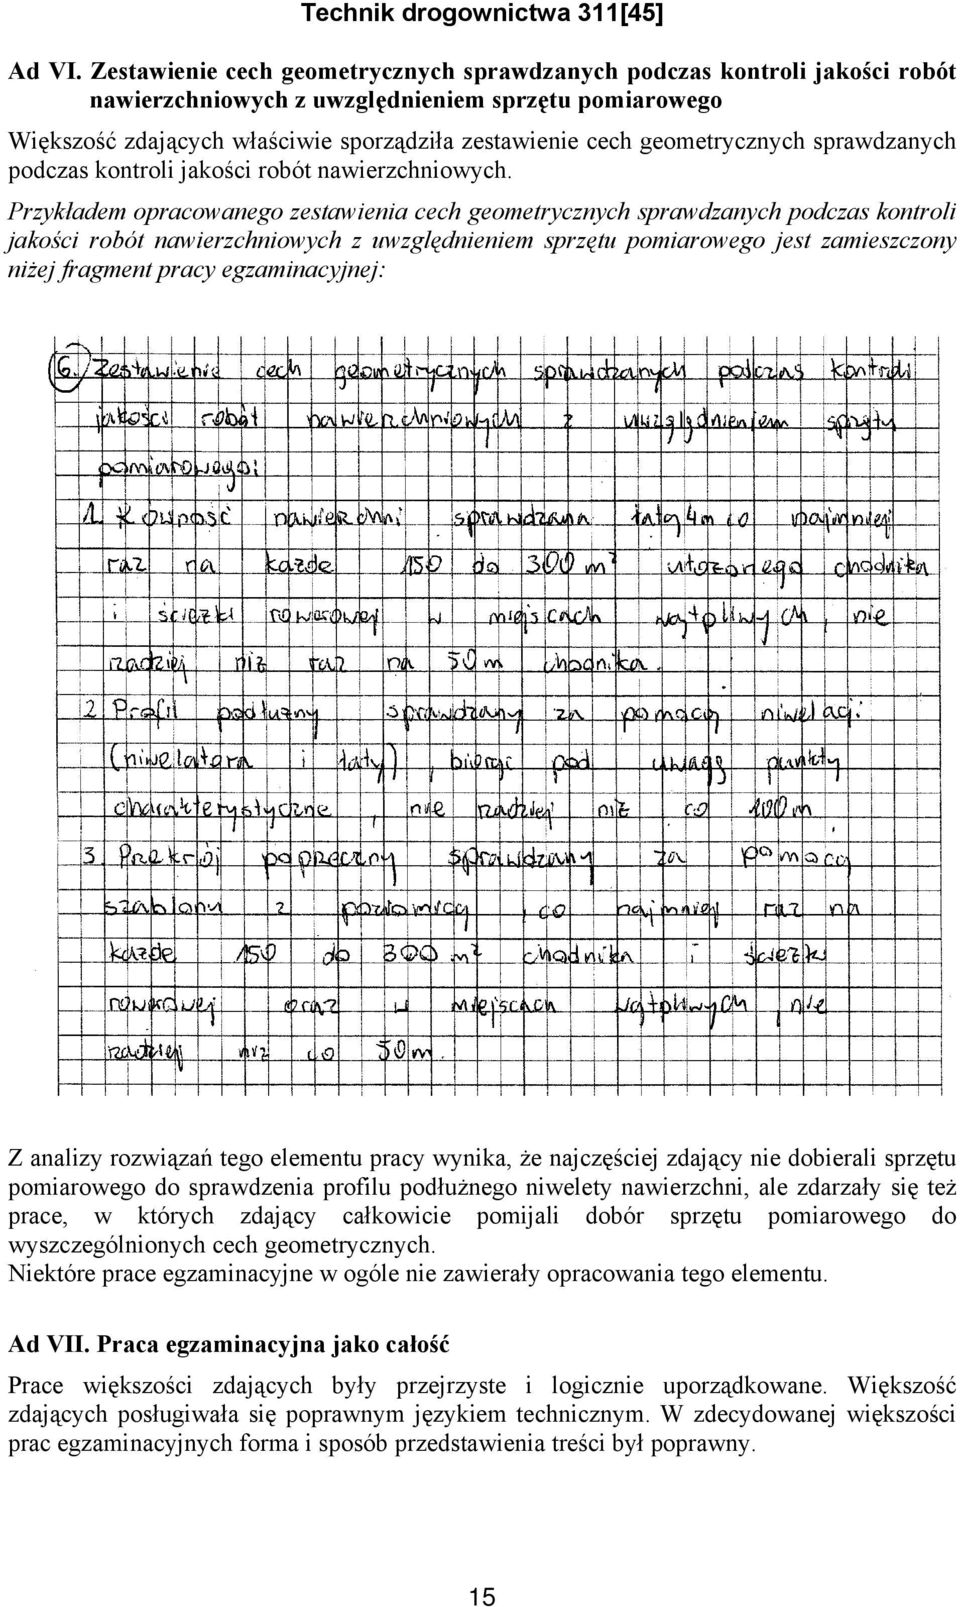 Technik drogownictwa 311[45]
Ad VI. Zestawienie cech geometrycznych sprawdzanych podczas kontroli jakości robót
nawierzchniowych z uwzględnieniem sprzętu pomiarowego
Większość zdających właściwie sporządziła zestawienie cech geometrycznych sprawdzanych
podczas kontroli jakości robót nawierzchniowych.
Przykładem opracowanego zestawienia cech geometrycznych sprawdzanych podczas kontroli
jakości robót nawierzchniowych z uwzględnieniem sprzętu pomiarowego jest zamieszczony
niżej fragment pracy egzaminacyjnej:
6. Zestawienie cech geometrycznych sprawdzanych podczas kontroli
jakości robót nawierzchniowych z uwzględnieniem sprzętu
pomiarowego:
1. Równość nawierzchni sprawdzana łatą 4m co najmniej
raz na każde 150 do 300 m² ułożonego chodnika
i ścieżki rowerowej w miejscach wątpliwych, nie
rzadziej niż raz na 50m chodnika.
2 Profil podłużny sprawdzany za pomocą niwelacji
(niwelatora i łaty), biorąc pod uwagę punkty
charakterystyczne, nie rzadziej niż co 100m.
3. Przekrój poprzeczny sprawdzany za pomocą
szablonu z poziomicą, co najmniej raz na
każde 150 do 300 m² chodnika i ścieżki
rowerowej oraz w miejscach wątpliwych, nie
rzadziej niż co 50m.
Z analizy rozwiązań tego elementu pracy wynika, że najczęściej zdający nie dobierali sprzętu
pomiarowego do sprawdzenia profilu podłużnego niwelety nawierzchni, ale zdarzały się też
prace, w których zdający całkowicie pomijali dobór sprzętu pomiarowego do
wyszczególnionych cech geometrycznych.
Niektóre prace egzaminacyjne w ogóle nie zawierały opracowania tego elementu.
Ad VII. Praca egzaminacyjna jako całość
Prace większości zdających były przejrzyste i logicznie uporządkowane. Większość
zdających posługiwała się poprawnym językiem technicznym. W zdecydowanej większości
prac egzaminacyjnych forma i sposób przedstawienia treści był poprawny.
15